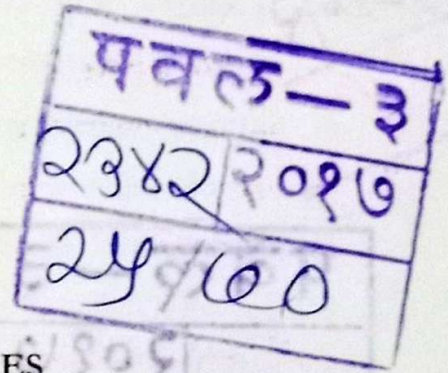 पवल—३
२३४२ २०१७
२५/७०
ES